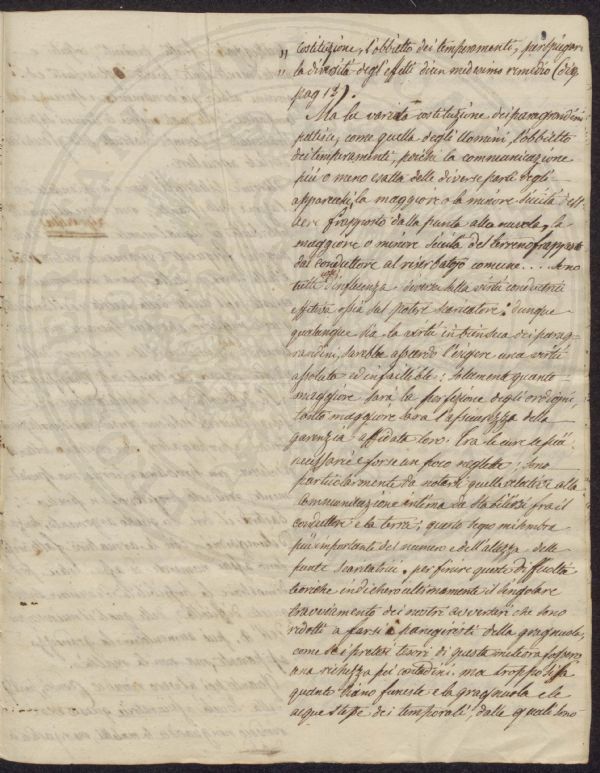 " costituzione, l'obbietto dei temperamenti, per spiegare
" la diversità degl'effetti di un medesimo rimedio (disp.
pag 13).
Ma la varietà costituzione dei paragrandini
patisce, come quella degli Uomini, l'obbietto
dei temperamenti, perchè la communicazione
più o meno esatta delle diverse parti degli
apparecchi, la maggiore o la minore siccità dell'
aere frapposto dalla punta alla nuvola, la
maggiore o minore siccità del terreno frapposto
dal conduttore al riserbatojo comune... sono
tutte cose d'influenza diversa sulla virtù conduttrice
effettiva ossia sul potere scaricatore: dunque
qualunque sia la virtù intrinseca dei parag-
randini, sarebbe assurdo l'esigere una virtù
assoluta ed infallibile; solamente quanto
maggiore sarà la perfezione degli ordigni,
tanto maggiore sarà l'assicurezza della
garenzia affidata loro. Tra le cure le più
necessarie e forse un poco neglette, sono
particolarmente da notarsi quelle relative alla
communicazione intima da stabilirsi fra il
conduttore e la terra; questo scopo mi sembra
più importante del numero e dell'altezza delle
punte scaricatrici. per finire queste difficoltà
teoriche indicherò ultimamente il singolare
travviamento dei nostri avvertori che sono
ridotti a farsi panegiristi della gragnuola,
come se i pretesi tesori di questa meteora fossero
una richezza pei contadini. ma troppo si sà
quanto siano funeste e la gragnuola e le
acque stesse dei temporali, dalle quali sono